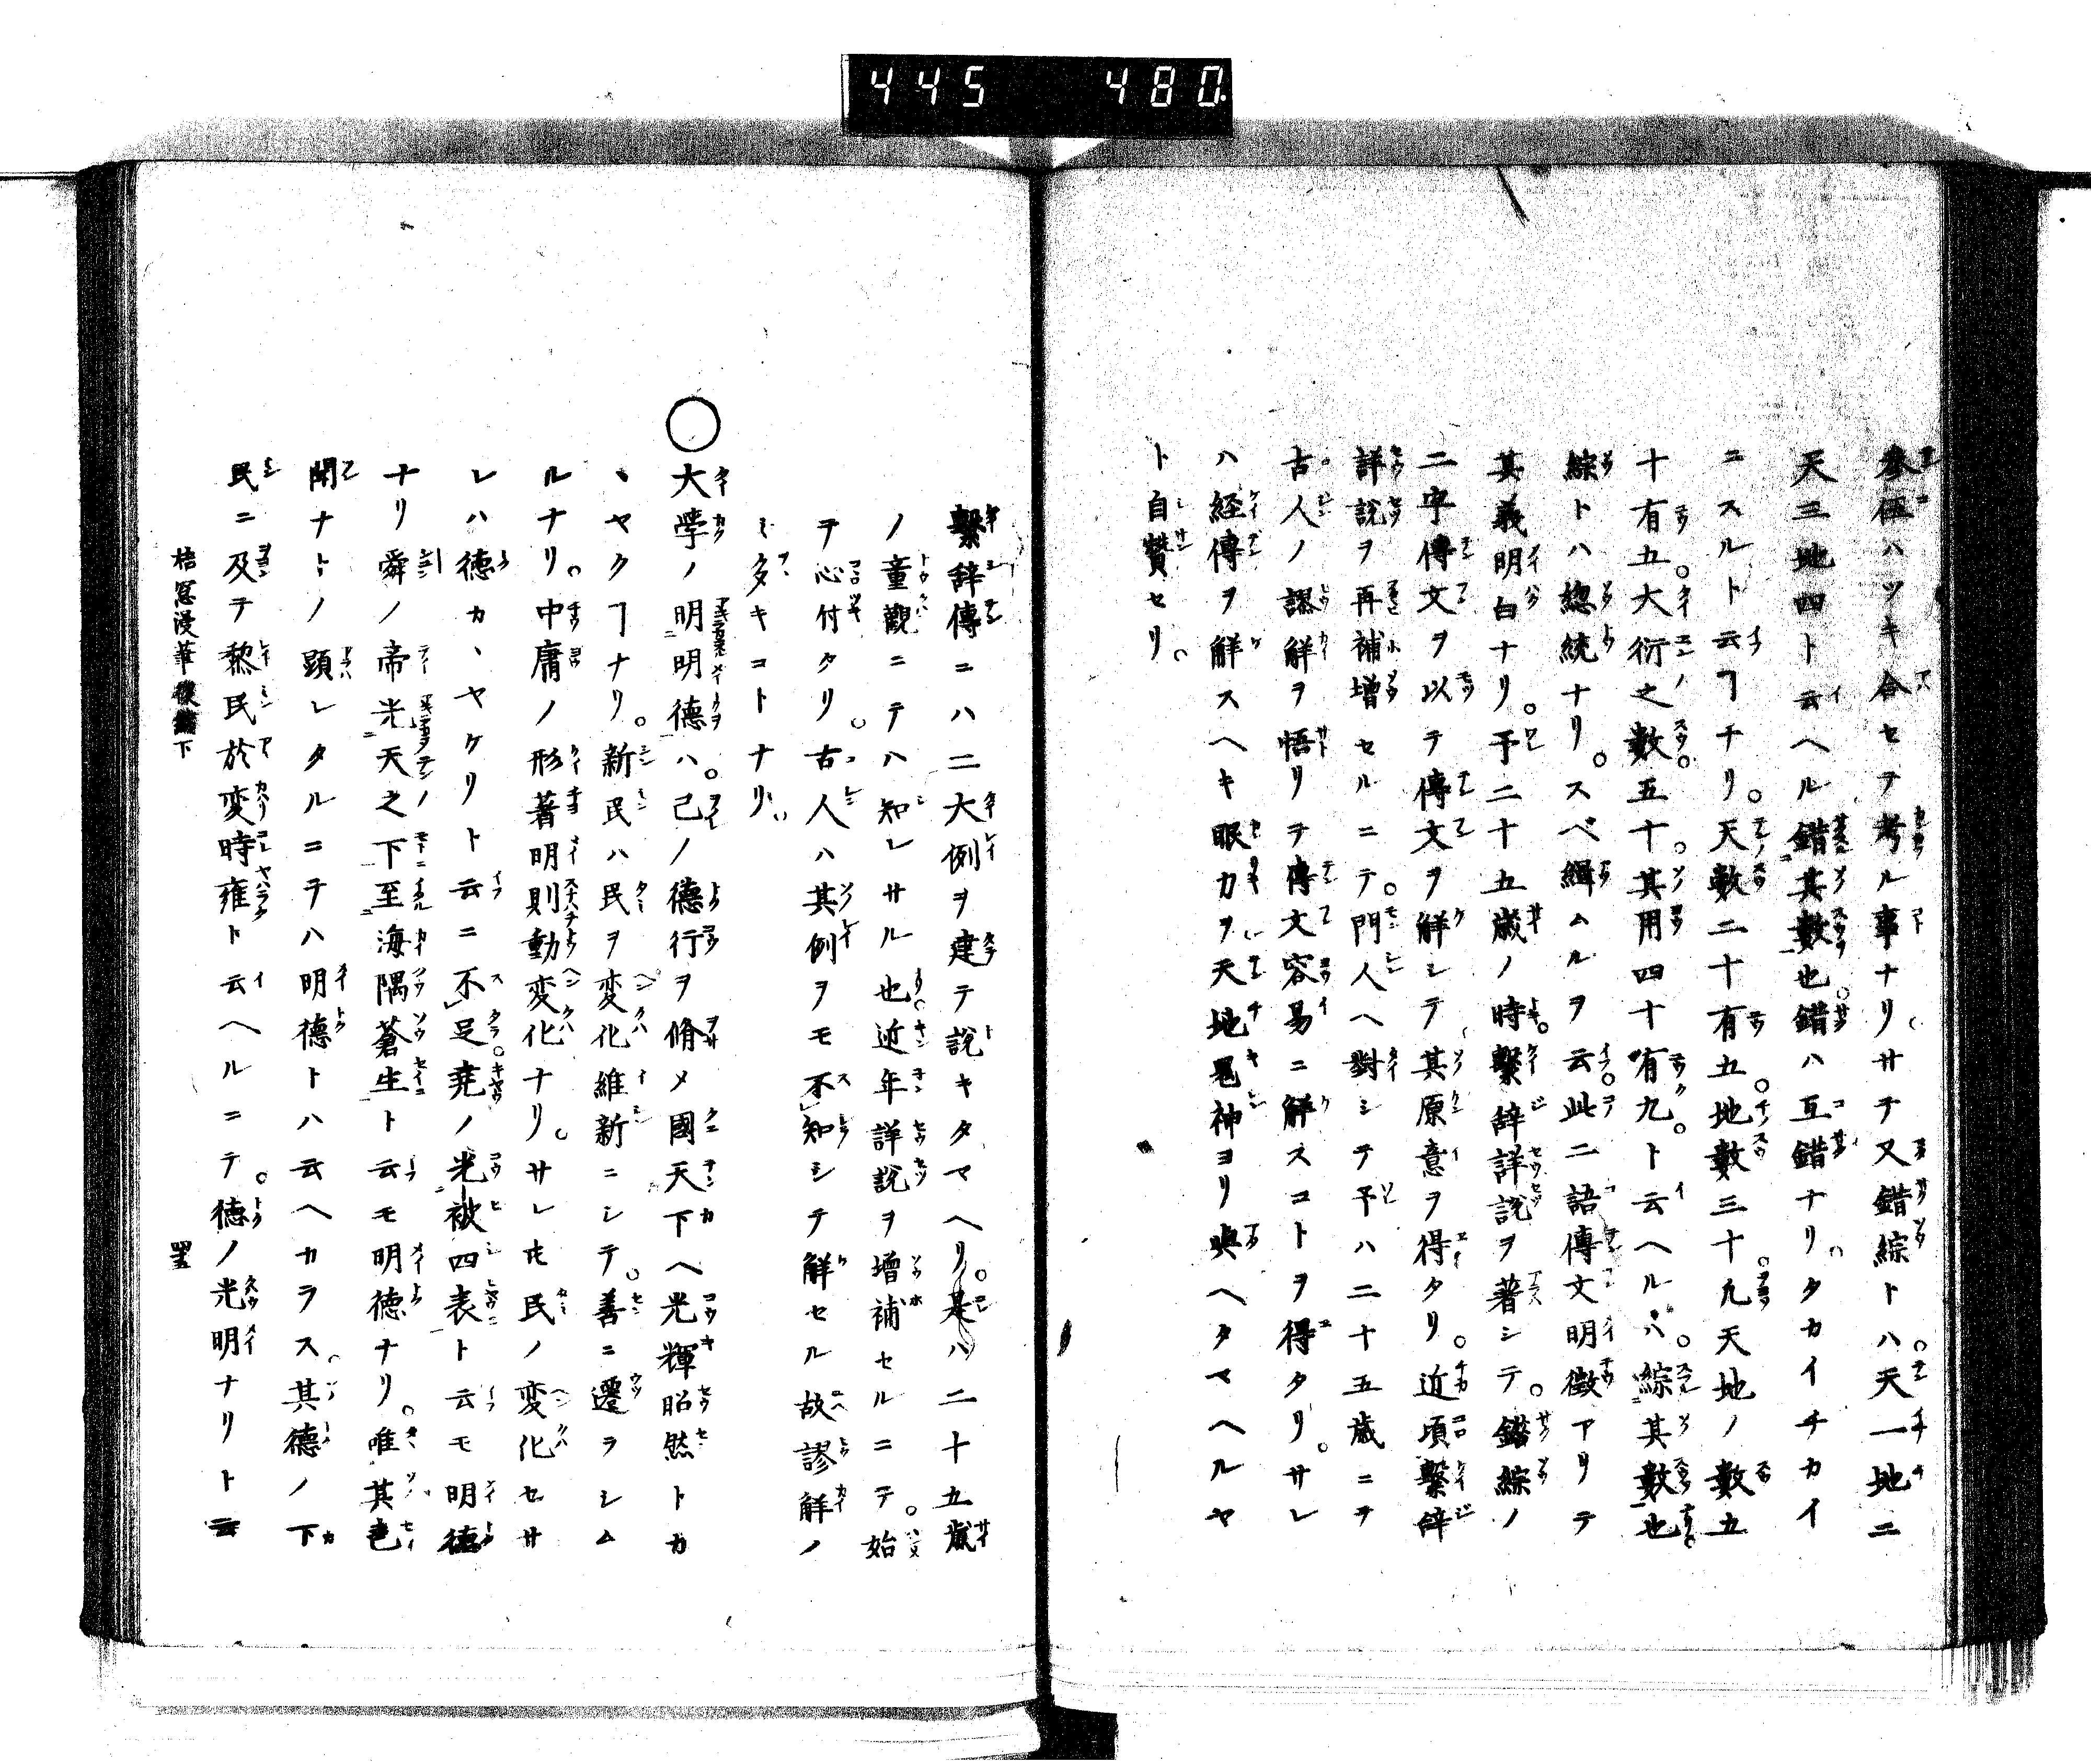 445 480
參伍ハツキ合セヲ考ル事ナリサテ又錯綜トハ天一地二
天三地四ト云ヘル錯其數也錯ハ互錯ナリタカイチカイ
ニスルト云ヿナリ。天數二十有五。地數三十。凡天地ノ數五
十有五。大衍之數五十。其用四十有九。ト云ヘルハ。綜其數也
綜トハ總統ナリ。スベ緝ムルヲ云。此二語傳文明徵アリテ
其義明白ナリ。予二十五歲ノ時。繫辞詳說ヲ著シテ。錯綜ノ
二字傳文ヲ以テ傳文ヲ解シテ其原意ヲ得タリ。近頃繫辞
詳說ヲ再補增セルニテ。門人ヘ對シテ予ハ二十五歲ニテ
古人ノ謬解ヲ悟リヲ傳文容易ニ解スコトヲ得タリ。サレ
ハ経傳ヲ解スヘキ眼力ヲ天地鬼神ヨリ與ヘタマヘルヤ
ト自贊セリ。
繫辞傳ニハ二大例ヲ建テ說キタマヘリ。是ハ二十五歲
ノ童觀ニテハ知レサル也近年詳說ヲ增補セルニテ。始
テ心付タリ。古人ハ其例ヲモ不知シテ解セル故謬解ノ
ミ多キコトナリ。
〇大學ノ明明德ハ。己ノ德行ヲ脩メ國天下ヘ光輝昭然トカ
ヽヤクヿナリ。新民ハ民ヲ変化維新ニシテ。善ニ遷ラシム
ルナリ。中庸ノ形著明則動変化ナリ。サレ𪜈民ノ変化セサ
レハ德カヽヤケリト云ニ不足。堯ノ光被四表ト云モ明德
ナリ舜ノ帝光天之下至海隅蒼生ト云モ明德ナリ。唯其色
聞ナトノ顕レタルニテハ明德トハ云ヘカラス。其德ノ下
民ニ及テ黎民於変時雍ト云ヘルニテ。德ノ光明ナリト云
梧窓漫筆後編下